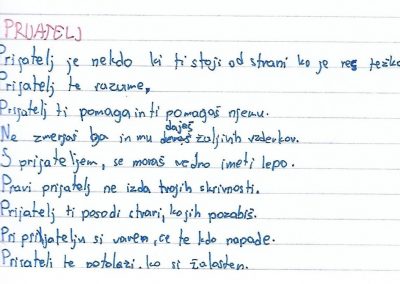 PRIJATELJ
Prijatelj je nekdo ki ti stoji od strani ko je res težko
Prijatelj te razume,
Prijatelj ti pomaga in ti pomagaš njemu.
Ne zmerjaš ga in mu daješ žaljivih vzdevkov.
S prijateljem, se moraš vedno imeti lepo.
Pravi prijatelj ne izda tvojih skrivnosti.
Prijatelj ti posodi stvari, ko jih pozabiš.
Pri prijatelju si varen, če te kdo napade.
Prijatelj te potolaži, ko si žalosten.